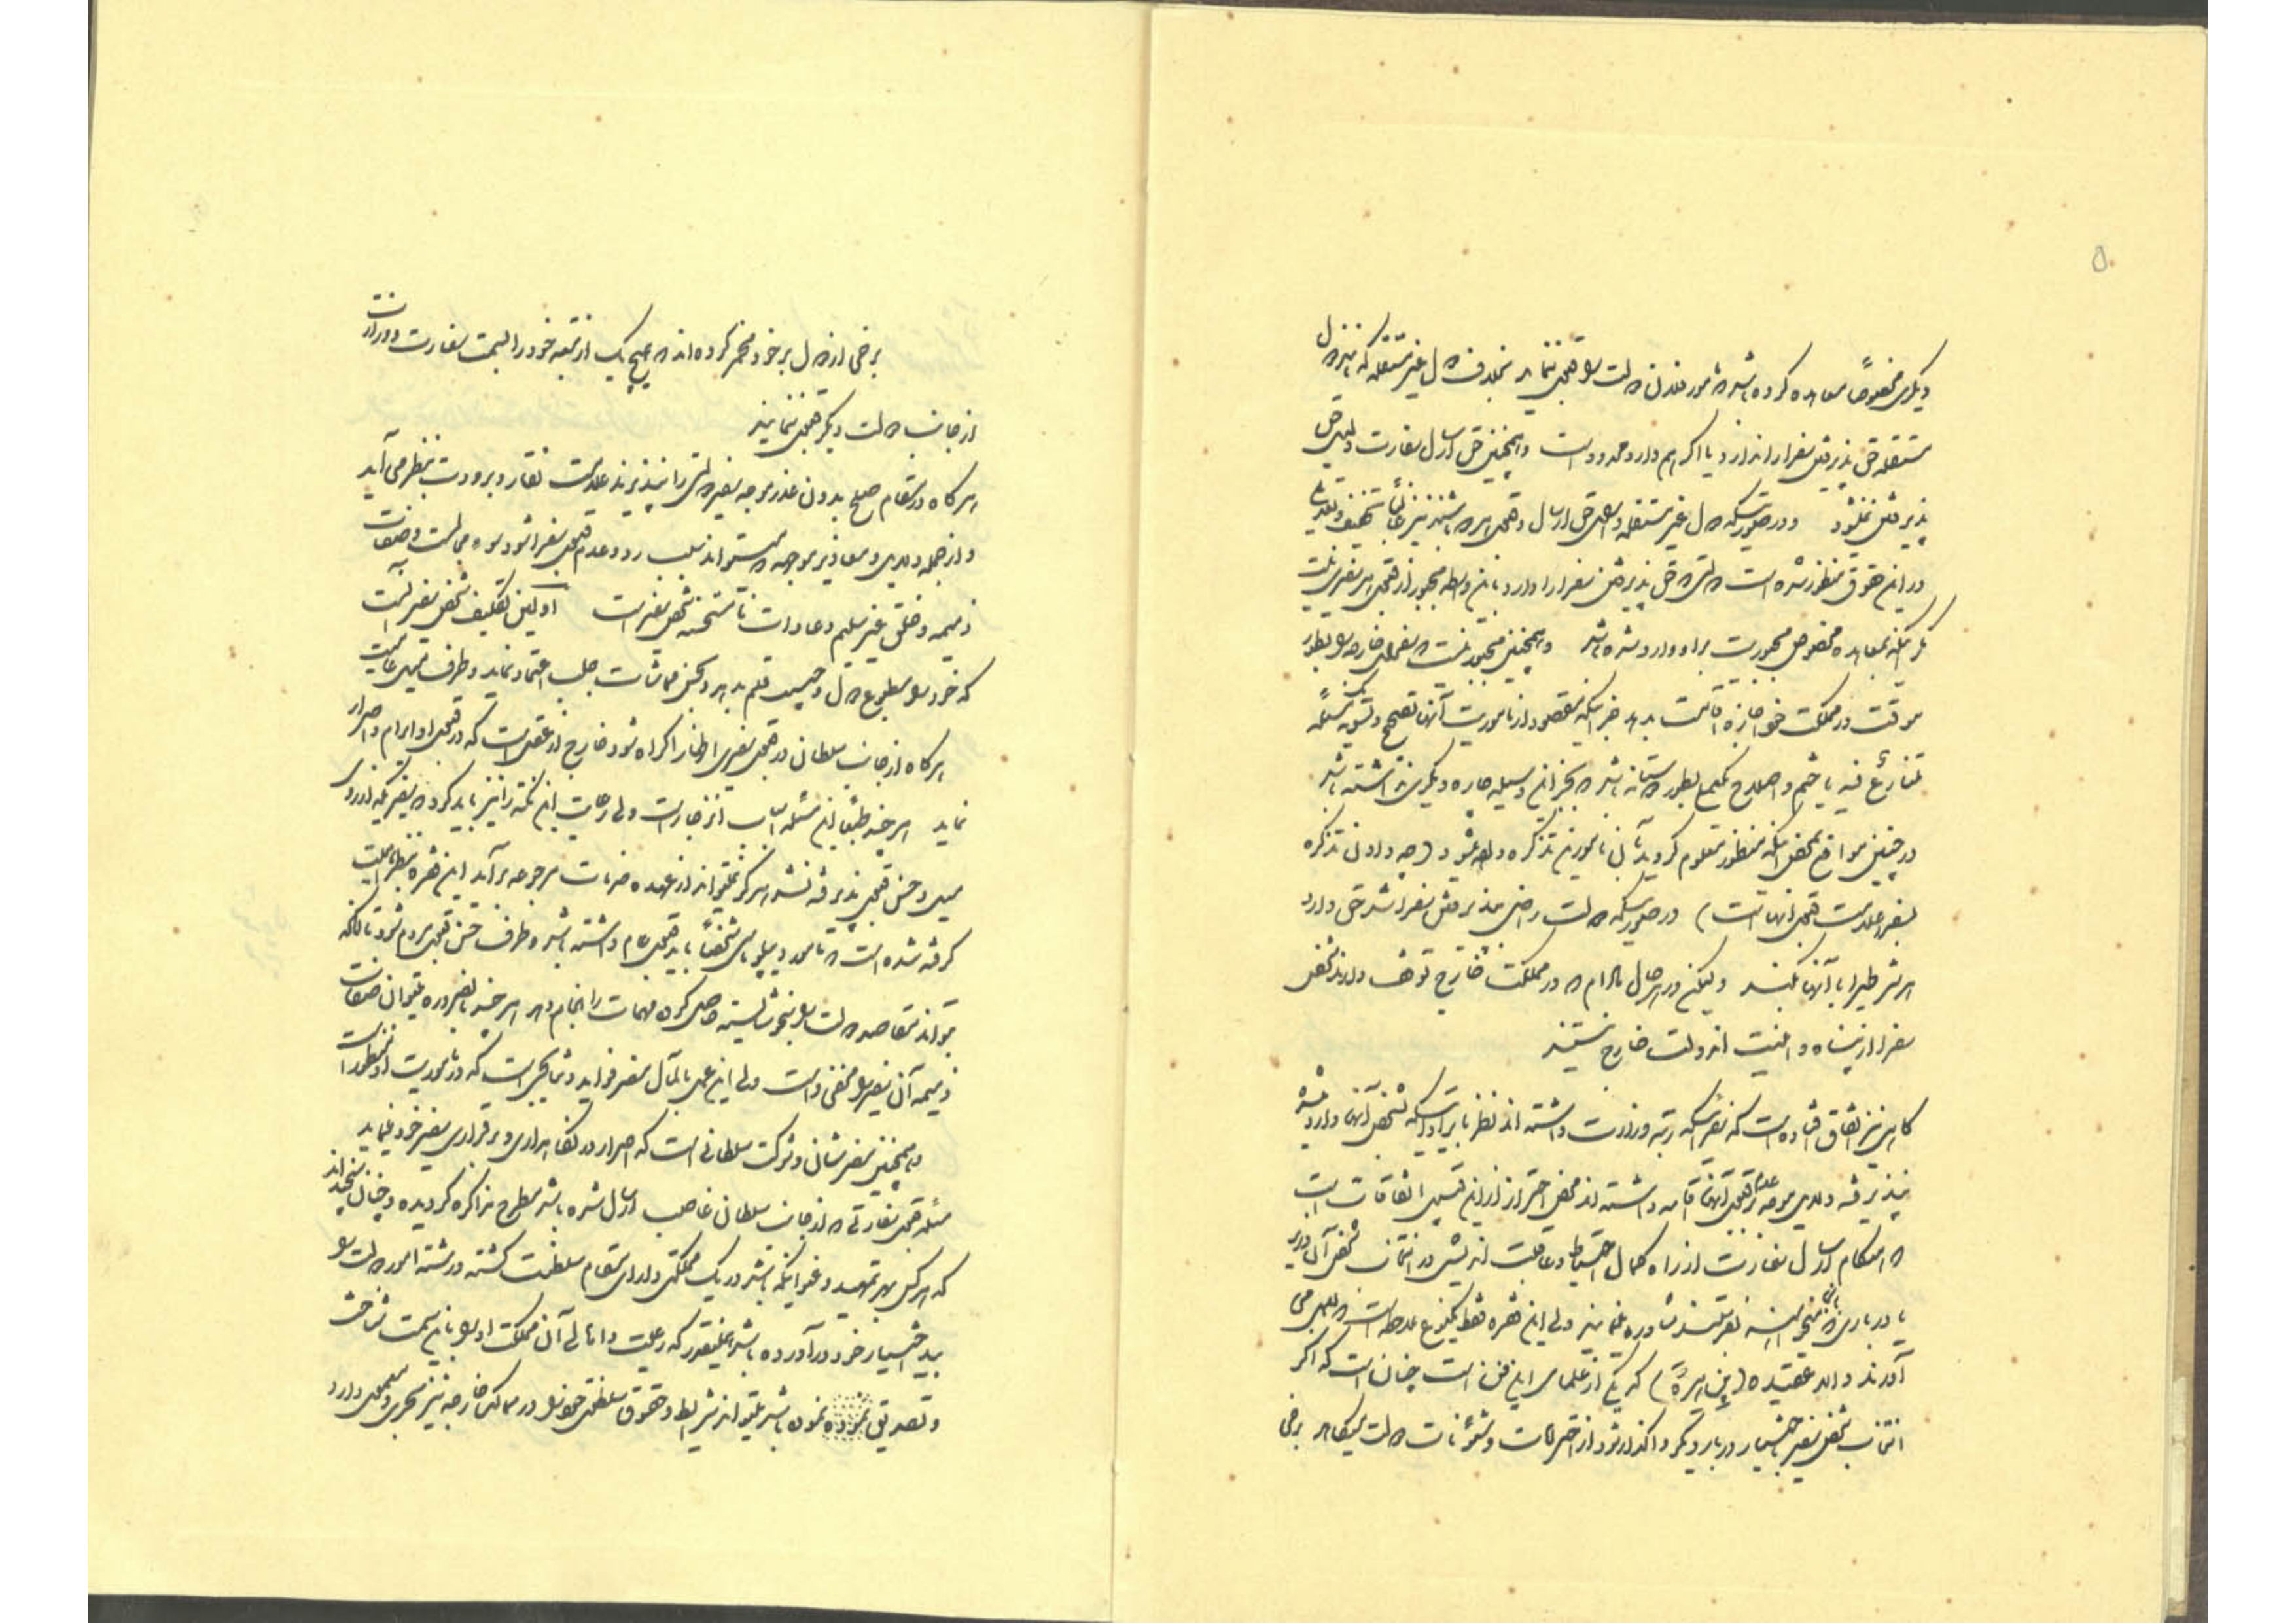 دیگری مخصوصاً معاهده کرده باشد مأمور فلان دولت را قبول ننماید بخلاف دول غیر مستقله که
مستقله حق پذیرفتن سفرا را ندارد یا اگر هم دارد محدود است و همچنین حق ارسال سفارت دلیل حق
پذیرفتن نمیشود و در صورتیکه دول غیر مستقله حق ارسال و قبول
در این حقوق منظور شده است دولتی که حق پذیرفتن سفرا را دارد باین واسطه مجبور از قبول هر سفیری نیست
مگر اینکه بمعاهده مخصوص مجبوریت بر او وارد شده باشد و همچنین مجبور نیست که سفرای خارجه را بطور
موقت در مملکت خود اجازه اقامت بدهد جز اینکه مقصود از مأموریت آنها تصحیح و تسویه مسئله
متنازع فیه یا ختم و اصلاح بطور دوستانه باشد که بجز این وسیله چاره دیگری نداشته باشد
در چنین مواقع بمحض اینکه منظور معلوم گردید بآن مأمورین تذکره داده میشود (چه دادن تذکره
بسفرا علامت قبول آنهاست) در صورتیکه دولت راضی بپذیرفتن سفرا شد حق دارد
هر شرطی را با آنها بکند ولیکن در هر حال مادام که در مملکت خارج توقف دارند شخص
سفرا از پناه و امنیت آن دولت خارج نیستند
گاهی نیز اتفاق افتاده است که سفرائیکه رتبه وزارت داشته اند نظر بایراداتیکه بشخص آنها وارد شده
نپذیرفته و دلایل موجه بر عدم قبول آنها اقامه داشته اند محض احتراز از این قسم اتفاقات است
که هنگام ارسال سفارت از راه کمال احتیاط و عاقبت اندیشی در انتخاب شخص آن وزیر
با درباری که میخواهند بآن بفرستند مشاوره مینمایند ولی این فقره فقط یکنوع ملاحظه است که بعمل می
آورند والا عقیده (بن هره) که یکی از علمای این فن است چنان است که اگر
انتخاب شخص سفیر باختیار دربار دیگر واگذار شود از احترامات و شئونات دولت میکاهد برخی
برخی از دول بر خود مخمر کرده اند که هیچیک از تبعه خود را بسمت سفارت و وزارت
از جانب دولت دیگر قبول ننمایند
هرگاه در مقام صلح بدون عذر موجه سفیر دولتی را نپذیرند علامت نقار و برودت بنظر می آید
و از جمله دلایل و معاذیر موجه که میتواند سبب رد و عدم قبول سفرا شود سوء و صفات
ذمیمه و خلق غیر سلیم و عادات نامستحسنه شخص سفیر است اولین تکلیف شخص سفیر آنست
که خود را مطبوع دول و بحسن مماشات جلب اعتماد نماید و طرف میل عامه
هرگاه از جانب سلطانی در قبول سفیری اظهار اکراه شود خارج از عقل است که در قبول او ابرام و اصرار
نماید هر چند طبعاً این مسئله اسباب انزجار است ولی رعایت این نکته را نیز باید کرد که سفیریکه از روی
میل و حسن قبول پذیرفته نشد هرگز نمیتواند از عهده خدمات مرجوعه برآید این فقره
گرفته شده است که مأمور دیپلوماسی شخصاً باید قبول عام داشته باشد و طرف حسن قبول مردم شود تا آنکه
بتواند مقاصد دولت را بنحو شایسته حاصل کرده مهمات را انجام دهد هر چند بالضروره میتوان صفات
ذمیمه آن سفیر را مخفی داشت ولی این عمل بالمآل مضر فواید و نتایجی است که در مأموریت او منظور است
و همچنین مضر شأن و شوکت سلطانی است که اصرار در نگاهداری و برقراری سفیر خود نماید
مسئله قبول سفارتی که از جانب سلطان غاصب ارسال شده باشد مطرح مذاکره گردیده و چنان سنجیده اند
که هر کس بهر تمهید و عنوانیکه باشد در یک مملکتی دارای مقام سلطنت گشته و رشته امور دولت را
بید اختیار خود درآورده باشد همینقدر که رعیت و اهالی آن مملکت او را باین سمت شناخته
و تصدیق نموده باشند میتواند شرایط و حقوق سلطنتی خود را در ممالک خارجه نیز مجری و معمول دارد